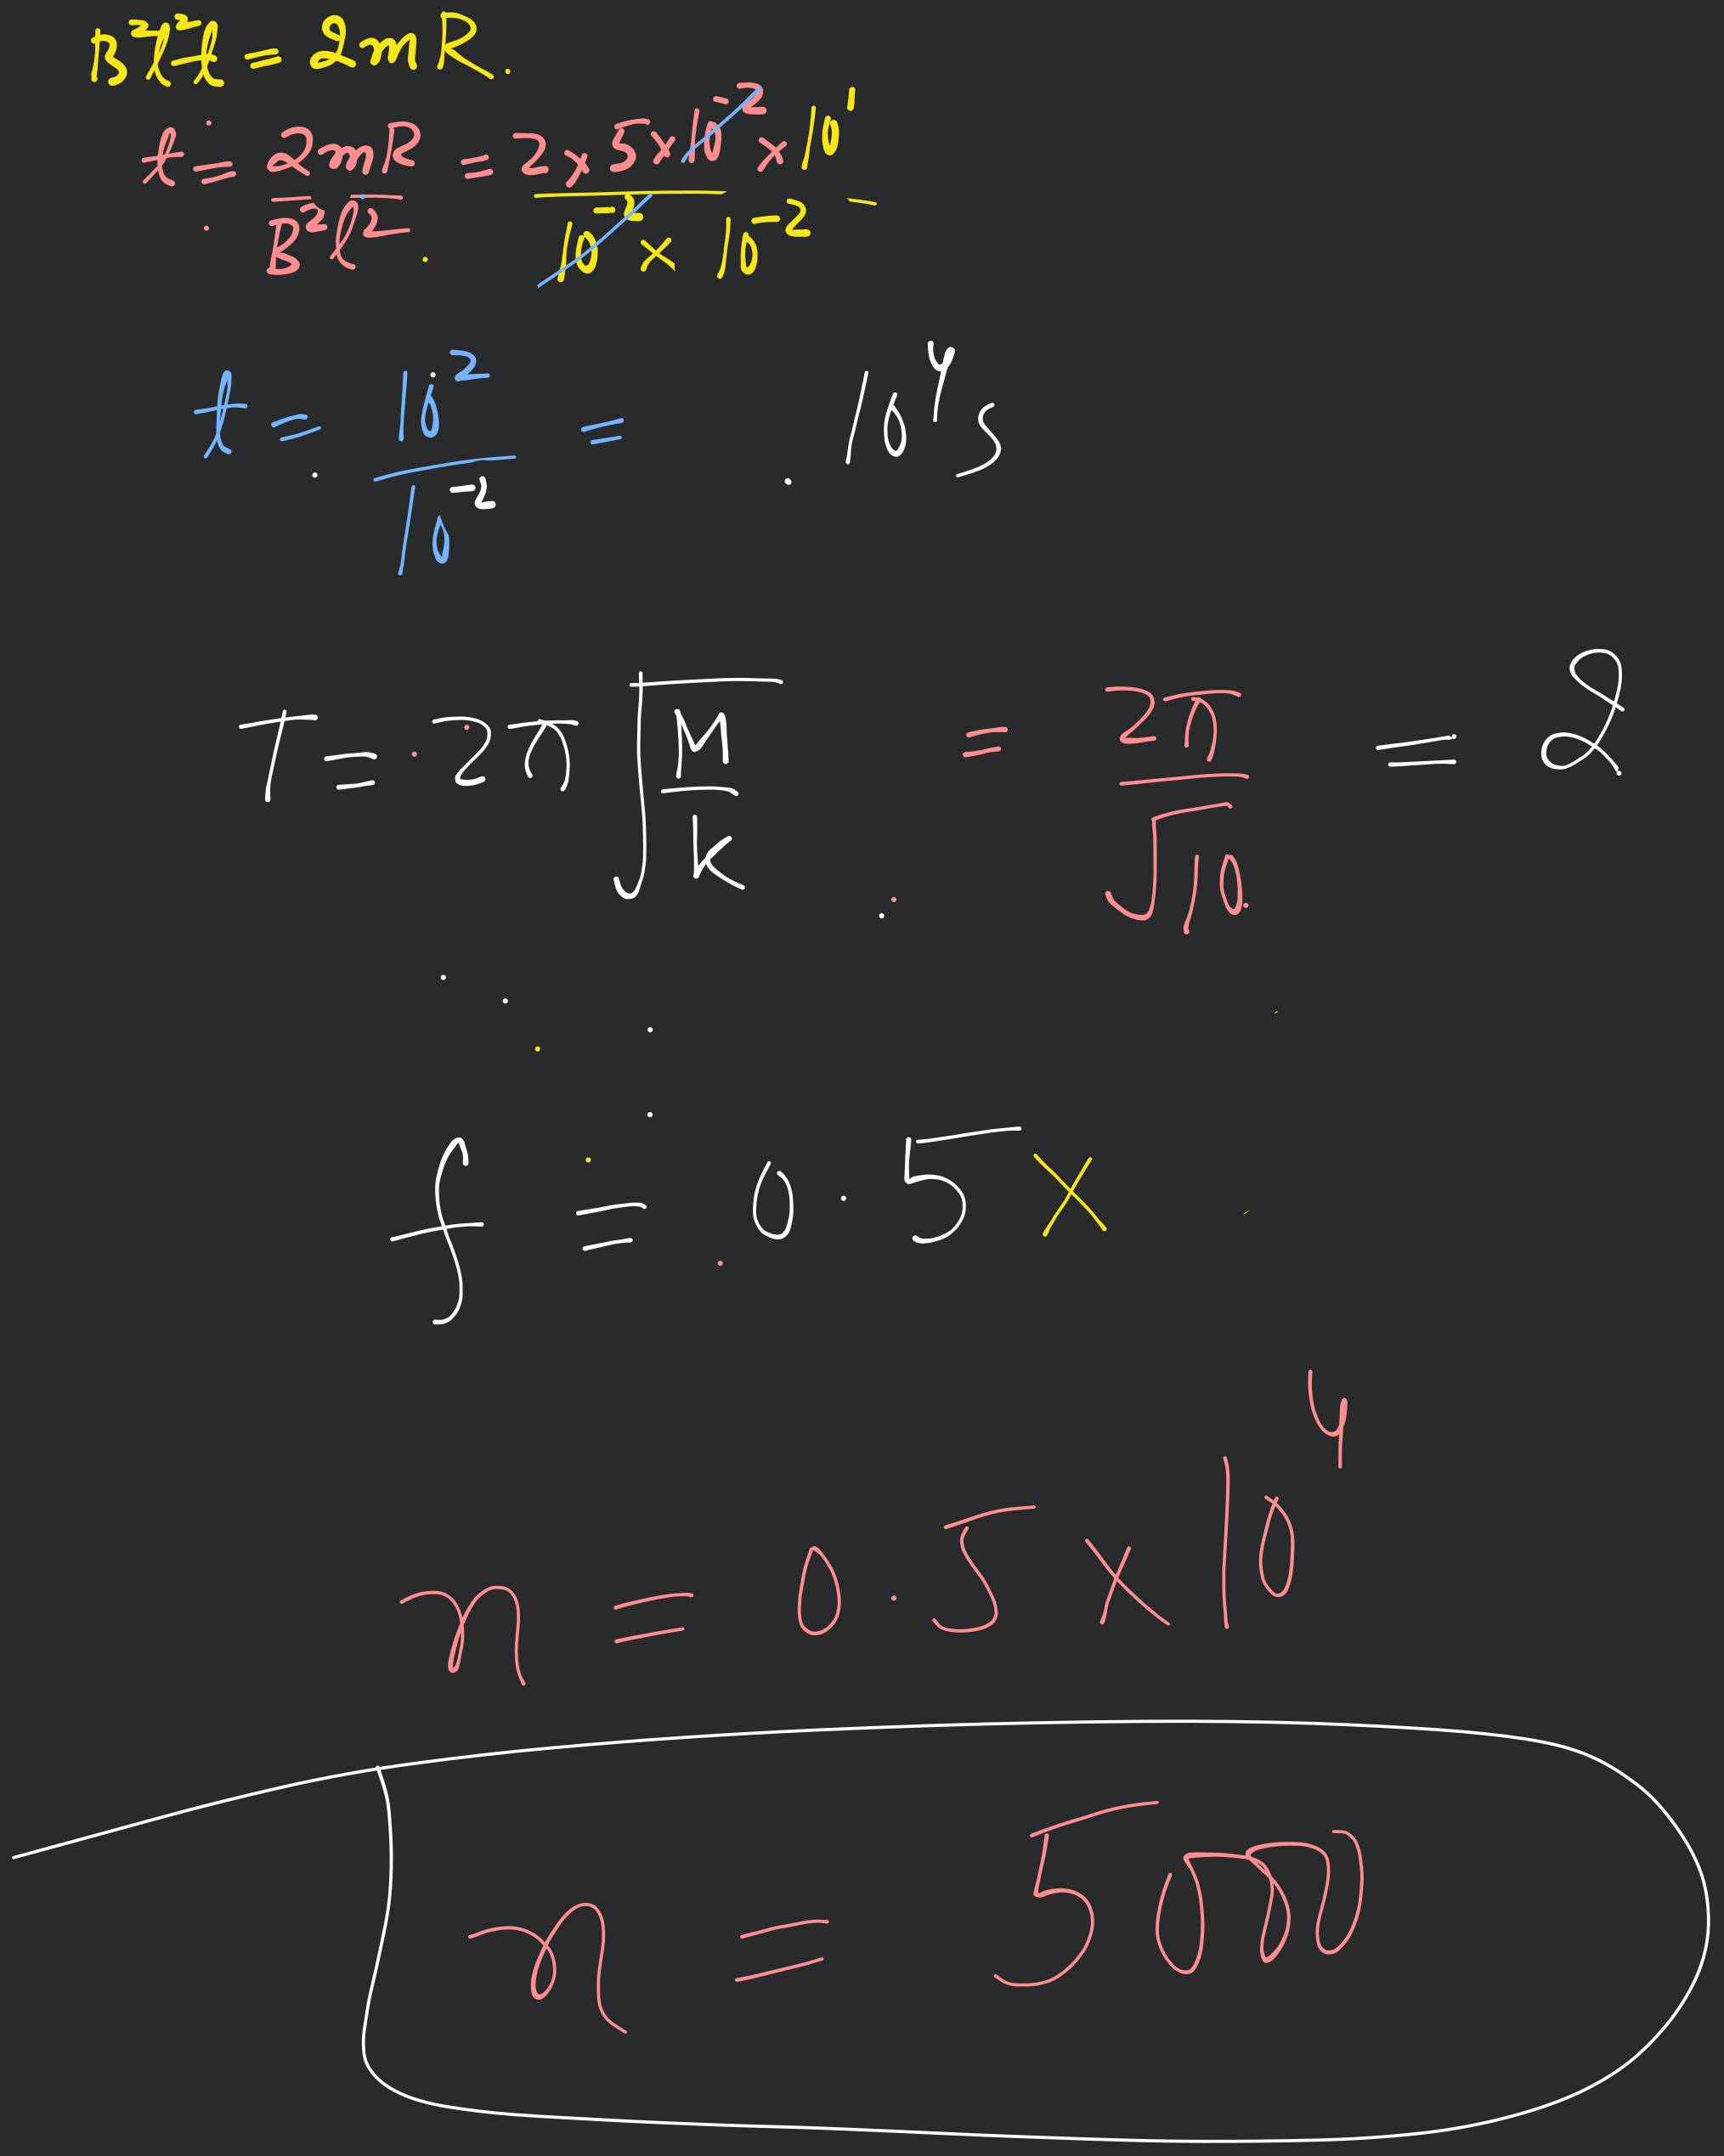 B²l²t = 2mR.
t = 2mR / B²l² = 2 x 5 x 10⁻² x 10¹ / 10⁻² x 10⁻²
t = 10² / 10⁻² = 10⁴ s
T = 2π √(M/K) = 2π/√10 = 2
f = 0.5 x
n = 0.5 x 10⁴
n = 5000